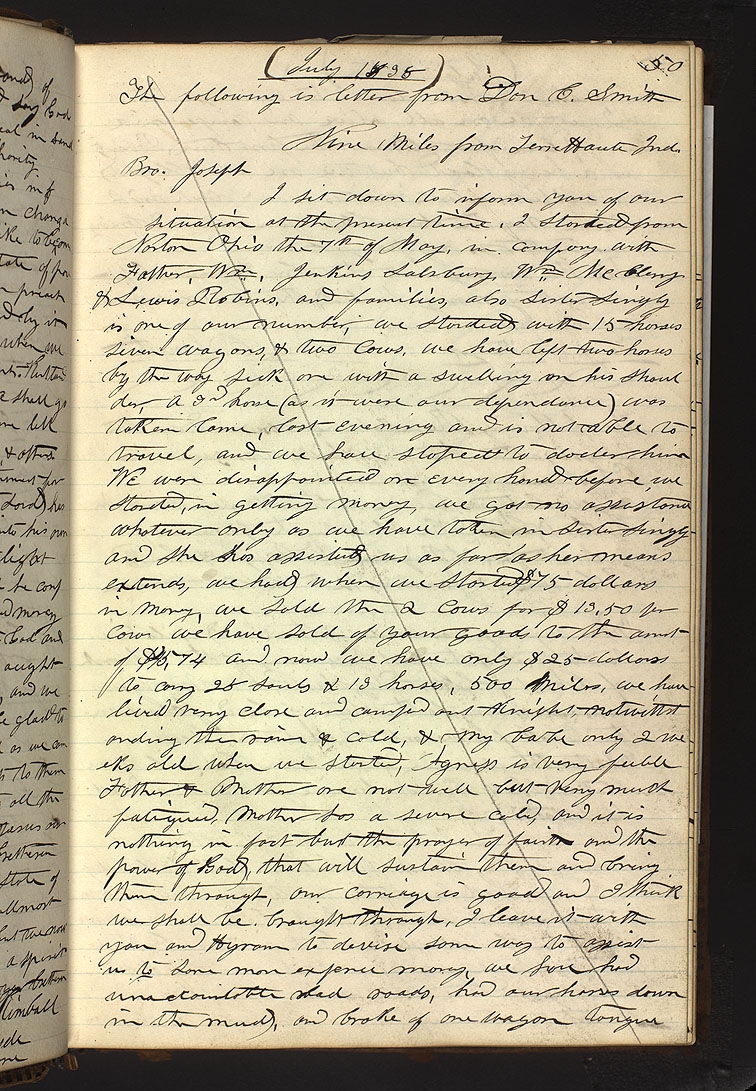 (July 1838)
50
The following is letter from Don C. Smith
Nine Miles from Terre Haute Ind.
Bro. Joseph
I sit down to inform you of our
situation at the present time. I started from
Norton Ohio the 7th of May, in company with
Father, Wm, Jenkins Salsbury, Wm McClery
& Lewis Robins, and families, also Sister Singly
is one of our number, we started with 15 horses
seven wagons, & two cows, we have left two horses
by the way sick one with a swelling on his shoul
der, a 3d horse (as it were our dependance) was
taken lame, last evening and is not able to
travel, and we have stoped to docter him
We were disappointed on every hand before we
started, in getting money, we got no assistance
whatever only as we have taken in Sister Singly
and she has assisted us as far as her means
extends, we had when we started $75 dollars
in money, we sold the 2 cows for $13,50 per
cow we have sold of your goods to the amt
of $4574 and now we have only $25 dollars
to carry 28 souls & 13 horses, 500 miles, we have
lived very close and camped out Knight notwithst
anding the rain & cold, & my babe only 2 we
eks old when we started, Agness is very feeble
Father & Mother are not well but very much
fatigued, Mother has a severe cold, and it is
nothing in fact but the prayer of faith and the
power of God, that will sustain them and bring
them through, our carriage is good and I think
we shall be brought through, I leave it with
you and Hyram to devise some way to assist
us to some more expence money, we have had
unaccountable bad roads, had our horses down
in the mud, and broke of one wagon tongue